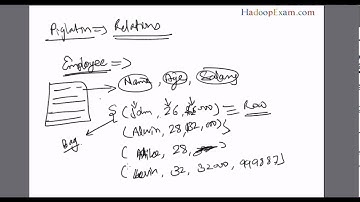 HadoopExam.com
Piglatin => Relations
Employee =>
Name, Age, Salary
{ (John, 26, 26000) = Row
(Alewin, 28, 32,000)
Bag
(Mike, 28,
(Kevin, 32, 32000, 999887)}